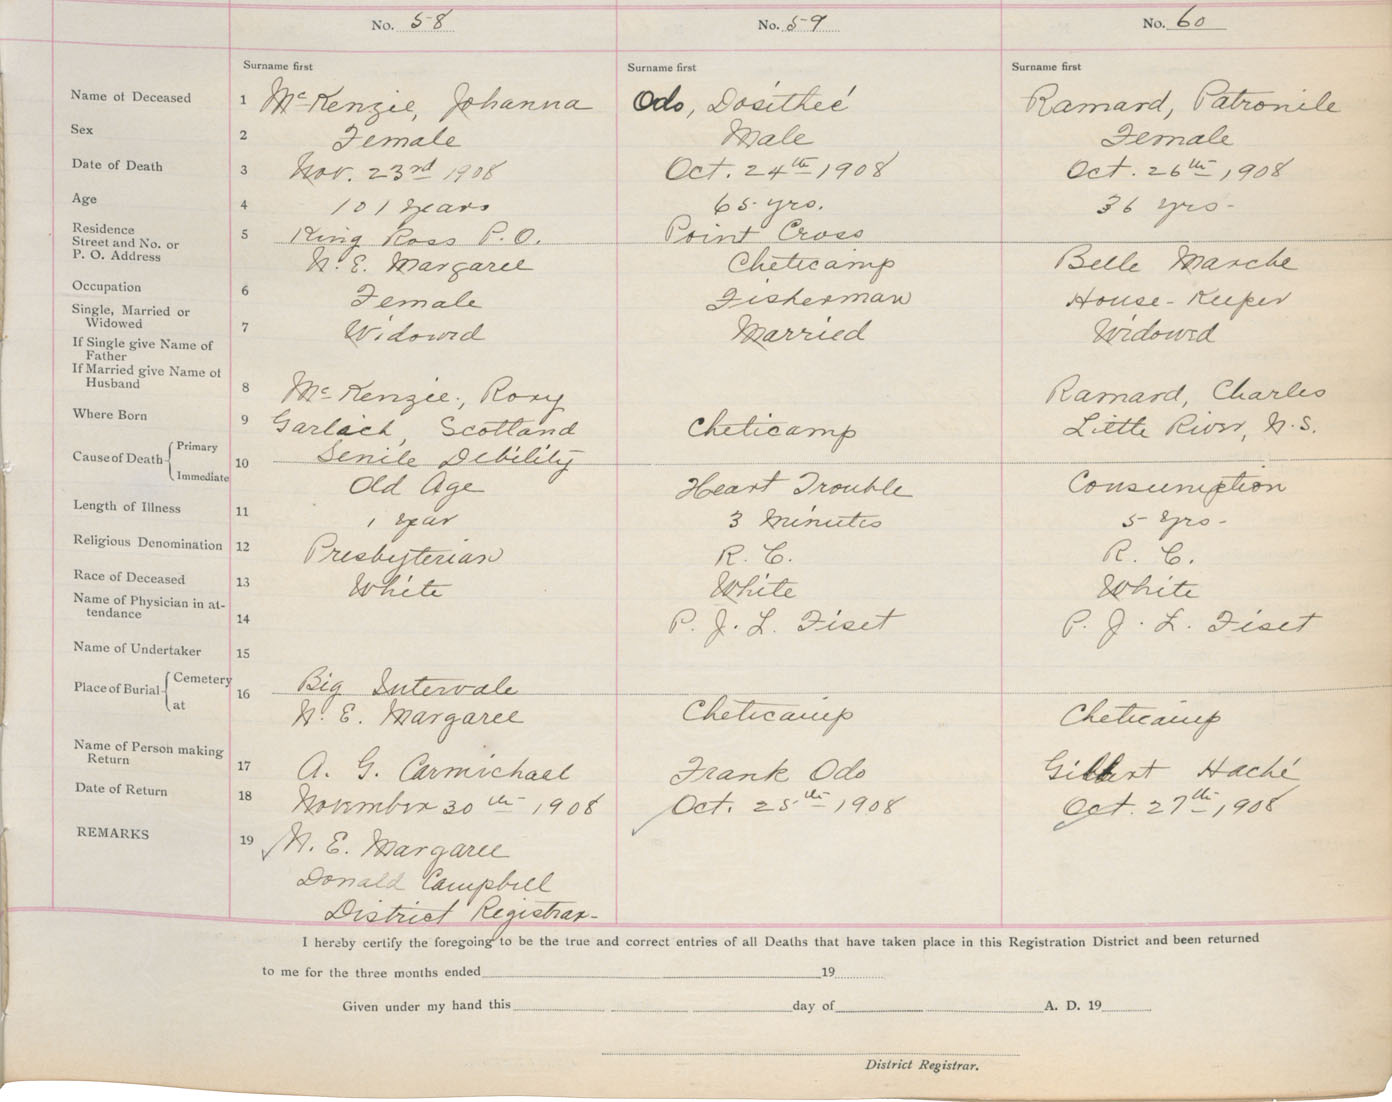 No. 58 No. 59 No. 60
Surname first Surname first Surname first
Name of Deceased 1 McKenzie, Johanna Odo, Dosithée Ramard, Patronile
Sex 2 Female Male Female
Date of Death 3 Nov. 23rd 1908 Oct. 24th 1908 Oct. 26th, 1908
Age 4 101 years 65 yrs. 36 yrs.
Residence
Street and No. or 5 King Ross P.O. Point Cross
P. O. Address N. E. Margaree Cheticamp Belle Marche
Occupation 6 Female Fisherman House-Keeper
Single, Married or
Widowed 7 Widowed Married Widowed
If Single give Name of
Father
If Married give Name of
Husband 8 McKenzie, Rory Ramard, Charles
Where Born 9 Garlach, Scotland Cheticamp Little River, N.S.
Cause of Death Primary 10 Senile Debility
Immediate Old Age Heart Trouble Consumption
Length of Illness 11 1 year 3 minutes 5 yrs.
Religious Denomination 12 Presbyterian R. C. R. C.
Race of Deceased 13 White White White
Name of Physician in at-
tendance 14 P. J. L. Fiset P. J. L. Fiset
Name of Undertaker 15
Place of Burial Cemetery 16 Big Intervale
at N. E. Margaree Cheticamp Cheticamp
Name of Person making
Return 17 A. G. Carmichael Frank Odo Gilbert Haché
Date of Return 18 November 30th 1908 Oct. 25th 1908 Oct. 27th, 1908
REMARKS 19 N. E. Margaree
Donald Campbell
District Registrar-
I hereby certify the foregoing to be the true and correct entries of all Deaths that have taken place in this Registration District and been returned
to me for the three months ended 19
Given under my hand this day of A. D. 19
District Registrar.